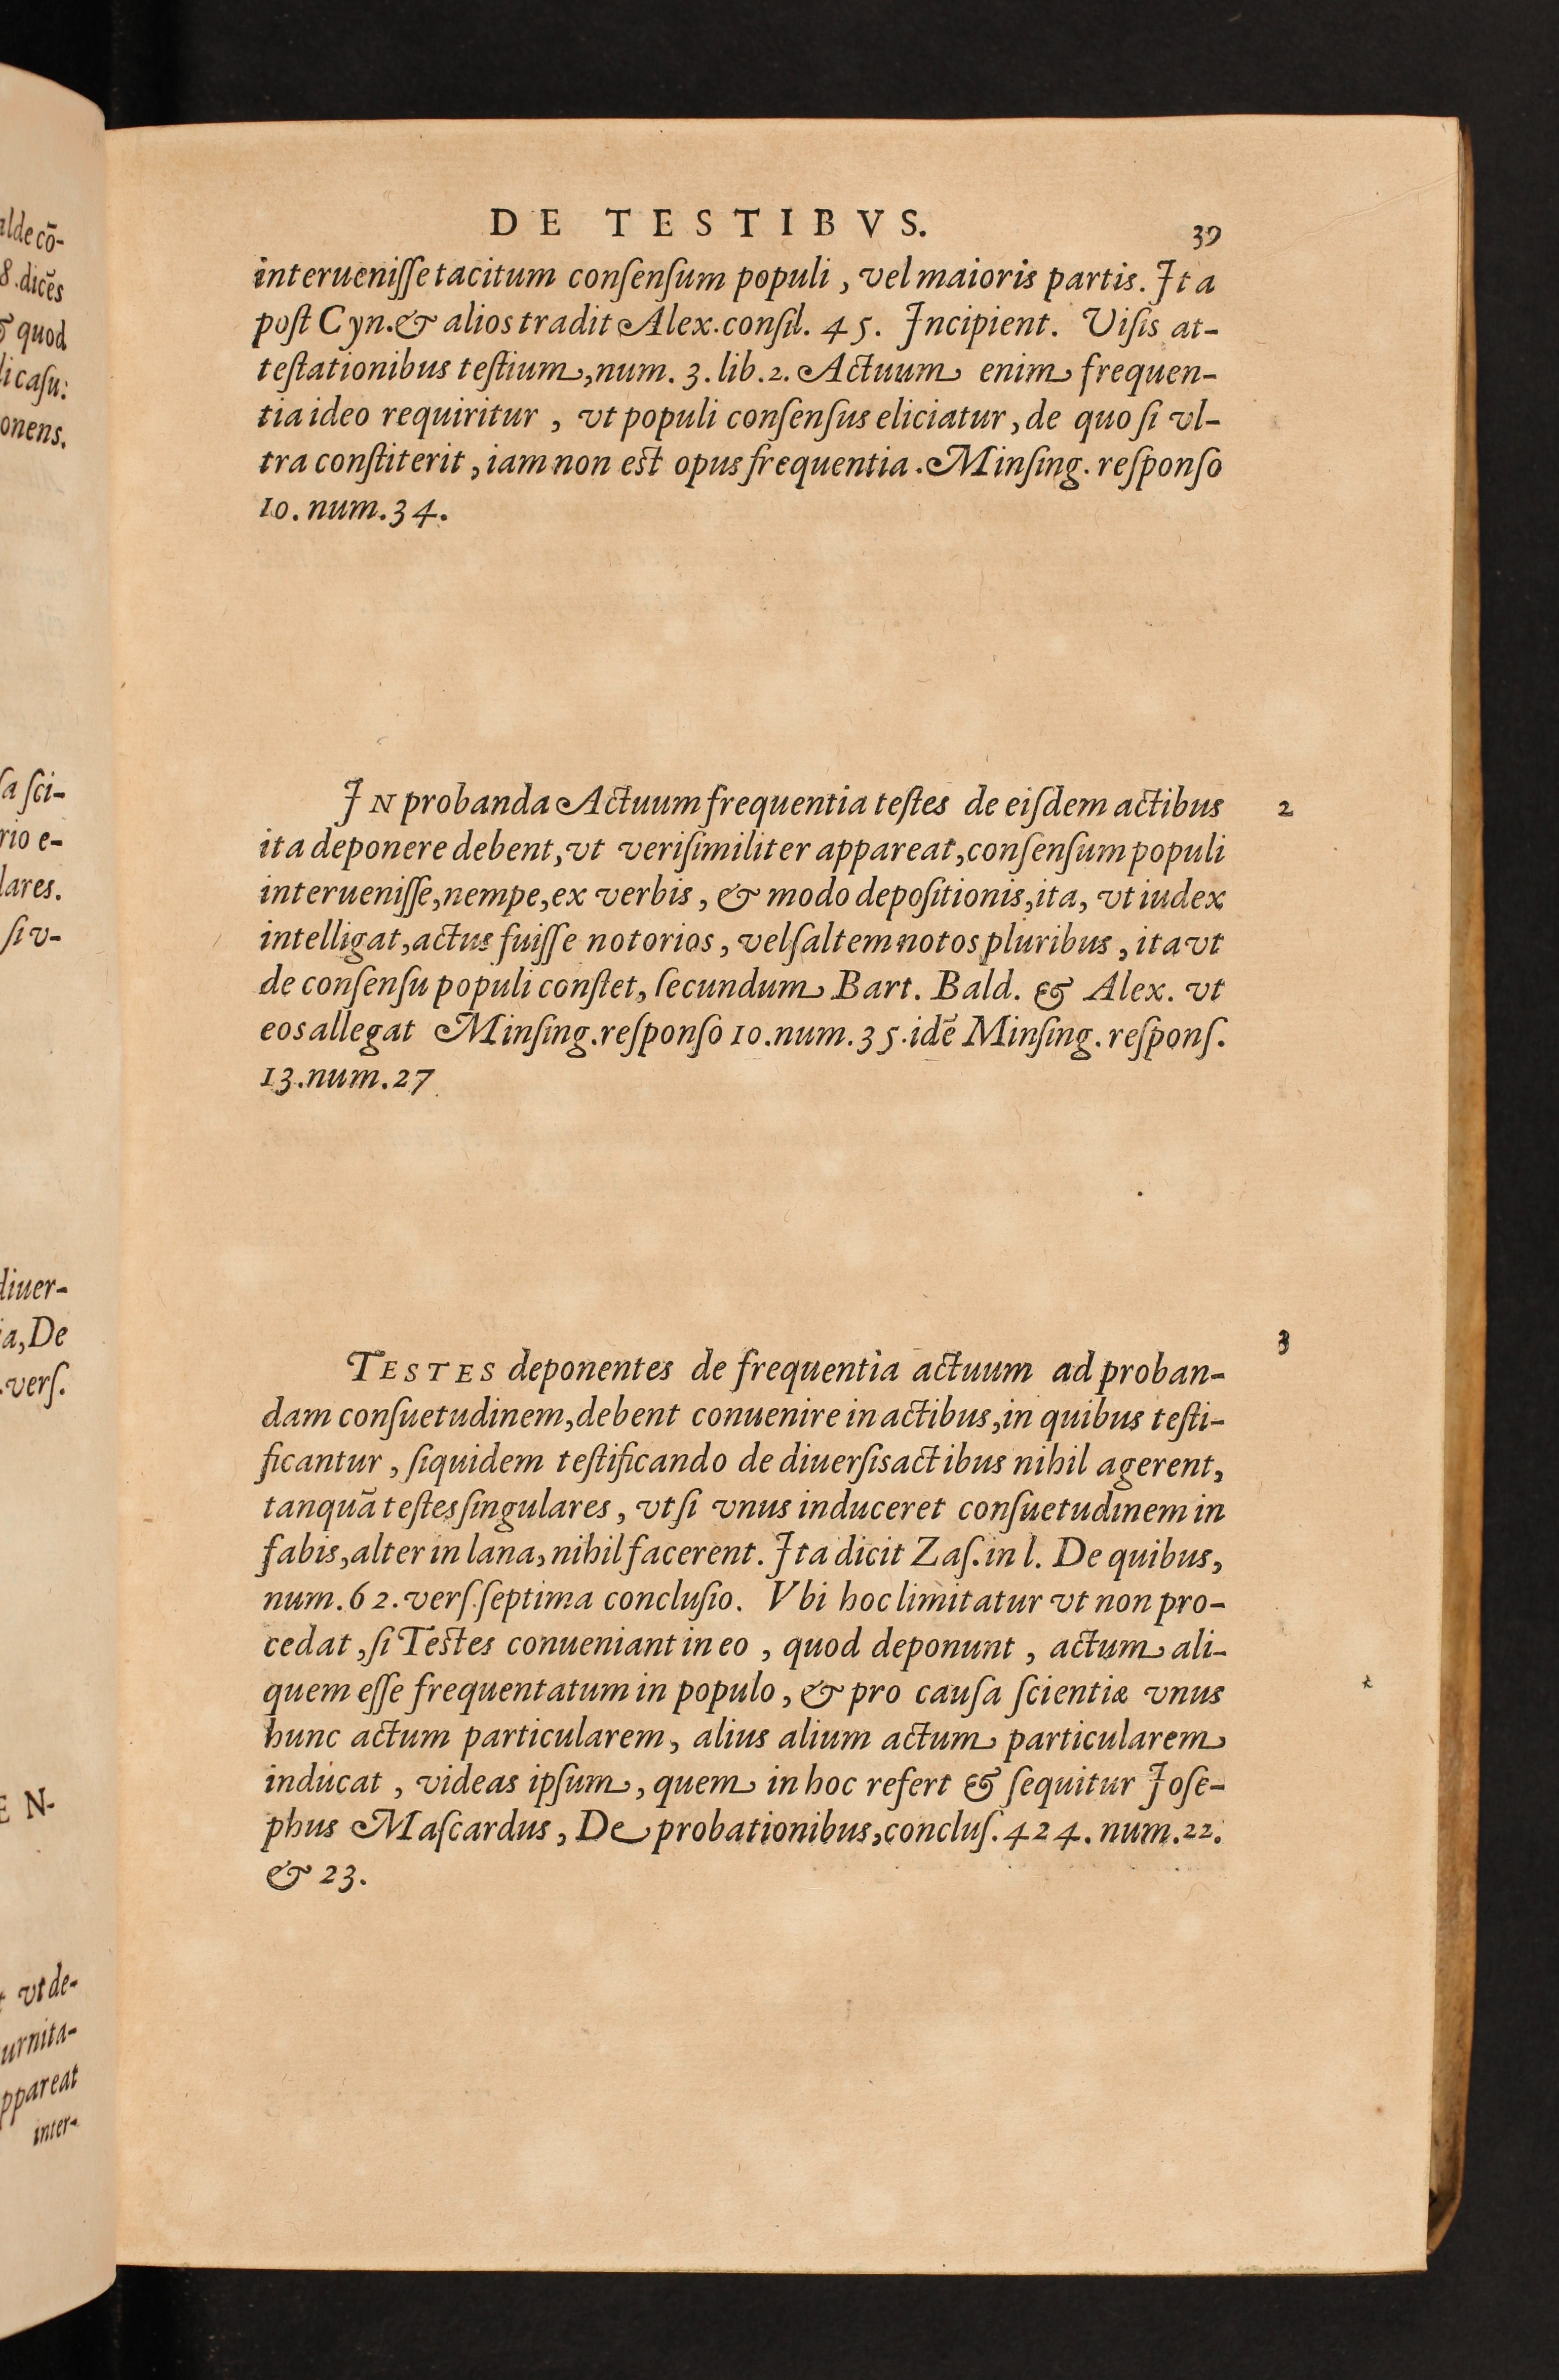 DE TESTIBVS.
39
interueniſſe tacitum conſenſum populi, vel maioris partis. Ita
poſt Cyn. & alios tradit Alex. conſil. 45. Incipient. Viſis at-
teſtationibus teſtium, num. 3. lib. 2. Actuum enim frequen-
tia ideo requiritur, vt populi conſenſus eliciatur, de quo ſi vl-
tra conſtiterit, iam non est opus frequentia. Minſing. reſponſo
10. num. 34.
IN probanda Actuum frequentia teſtes de eiſdem actibus
2
ita deponere debent, vt veriſimiliter appareat, conſenſum populi
interueniſſe, nempe, ex verbis, & modo depoſitionis, ita, vt iudex
intelligat, actus fuiſſe notorios, vel ſaltem notos pluribus, ita vt
de conſenſu populi conſtet, ſecundum Bart. Bald. & Alex. vt
eos allegat Minſing. reſponſo 10. num. 35. idē Minſing. reſponſ.
13. num. 27
3
TESTES deponentes de frequentia actuum ad proban-
dam conſuetudinem, debent conuenire in actibus, in quibus teſti-
ficantur, ſiquidem teſtificando de diuerſis actibus nihil agerent,
tanquā teſtes ſingulares, vt ſi vnus induceret conſuetudinem in
fabis, alter in lana, nihil facerent. Ita dicit Zaſ. in l. De quibus,
num. 62. verſ. ſeptima concluſio. Vbi hoc limitatur vt non pro-
cedat, ſi Testes conueniant in eo, quod deponunt, actum ali-
quem eſſe frequentatum in populo, & pro cauſa ſcientiæ vnus
hunc actum particularem, alius alium actum particularem
inducat, videas ipſum, quem in hoc refert & ſequitur Ioſe-
phus Maſcardus, De probationibus, concluſ. 424. num. 22.
& 23.
alde cō-
8. dicēs
& quod
li caſu:
onens.
ſa ſci-
rio e-
lares.
ſi v-
diuer-
ia, De
verſ.
E N-
vt de-
urnita-
ppareat
inter-